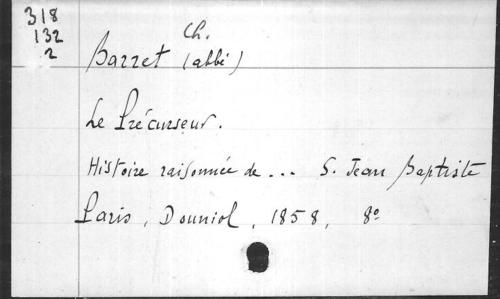 318
132
2
Barret Ch. (abbé)
Le Précurseur.
Histoire raisonnée de ... S. Jean Baptiste
Paris, Douniol, 1858, 8º